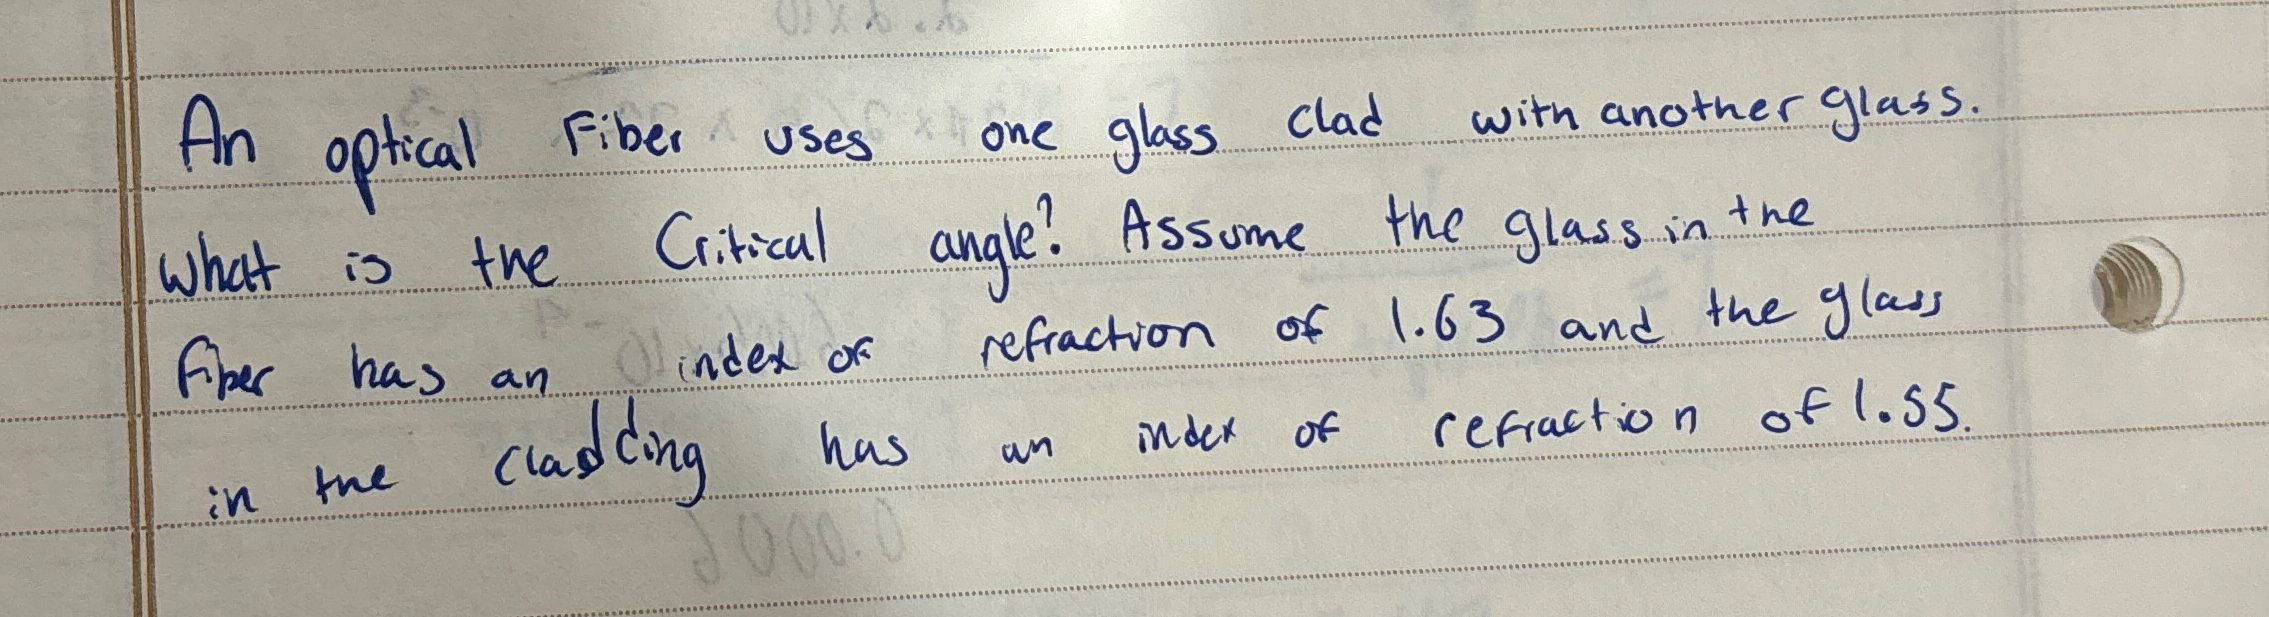 An optical Fiber uses one glass clad with another glass.
What is the Critical angle? Assume the glass in the
fiber has an index of refraction of 1.63 and the glass
in the cladding has an index of refraction of 1.55.